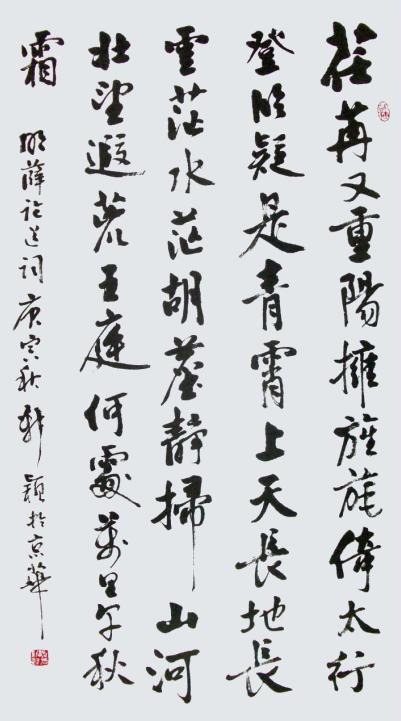 荏苒又重陽擁旌旄倚太行
登临疑是青霄上天長地長
雲茫水茫胡塵靜掃山河
壮望遐荒王庭何處萬里尽秋
霜
明薛论道词庚寅秋穎於京華